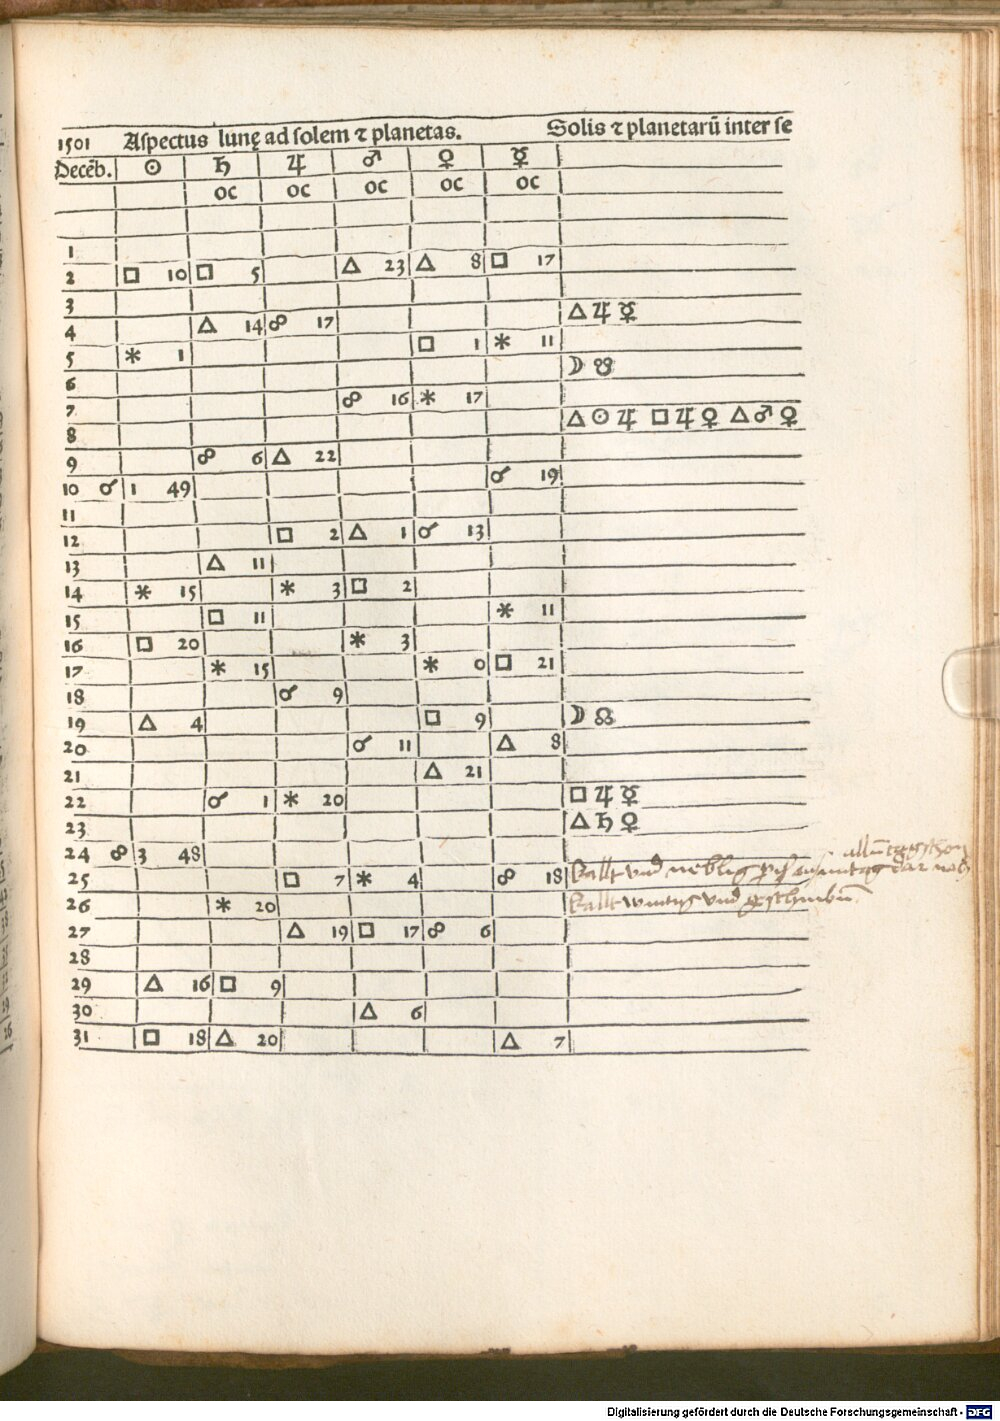 1501 Aſpectus lunę ad ſolem ⁊ planetas. Solis ⁊ planetarū inter ſe
Decēb. ☉ ♄ ♃ ♂ ♀ ☿
oc oc oc oc oc
1
2 □ 10 □ 5 △ 23 △ 8 □ 17
3
4 △ 14 ☍ 17 △ ♃ ☿
5 ⚹ 1 □ 1 ⚹ 11
6 ☽ ☋
7 ☍ 16 ⚹ 17
8 △ ☉ ♃ □ ♃ ♀ △ ♂ ♀
9 ☍ 6 △ 22
10 ☌ 1 49 ☌ 19
11
12 □ 2 △ 1 ☌ 13
13 △ 11
14 ⚹ 15 ⚹ 3 □ 2
15 □ 11 ⚹ 11
16 □ 20 ⚹ 3
17 ⚹ 15 ⚹ 0 □ 21
18 ☌ 9
19 △ 4 □ 9 ☽ ☊
20 ☌ 11 △ 8
21 △ 21
22 ☌ 1 ⚹ 20 □ ♃ ☿
23 △ ♄ ♀
24 ☍ 3 48
25 □ 7 ⚹ 4 ☍ 18 kallt vnd neblig dar nach
26 ⚹ 20 kallt vnd
27 △ 19 □ 17 ☍ 6
28
29 △ 16 □ 9
30 △ 6
31 □ 18 △ 20 △ 7
Digitalisierung gefördert durch die Deutsche Forschungsgemeinschaft - DFG